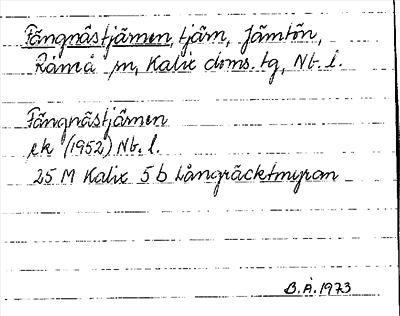 Fängnästjärnen, tjärn, Jämtön,
Råneå sn, Kalix doms. tg, Nb. l.
Fängnästjärnen
ek (1952) Nb. l.
25 M Kalix 5 b Långräcktmyran
B. Å. 1973